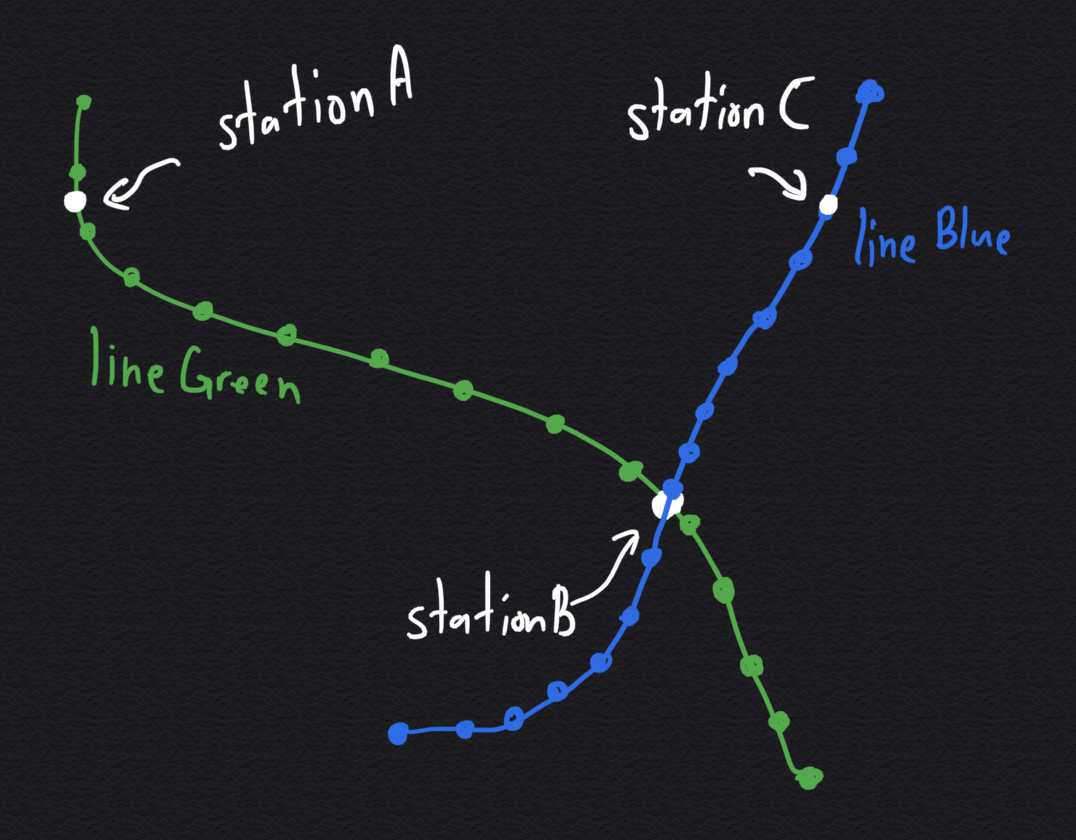 station A
station C
line Blue
line Green
station B